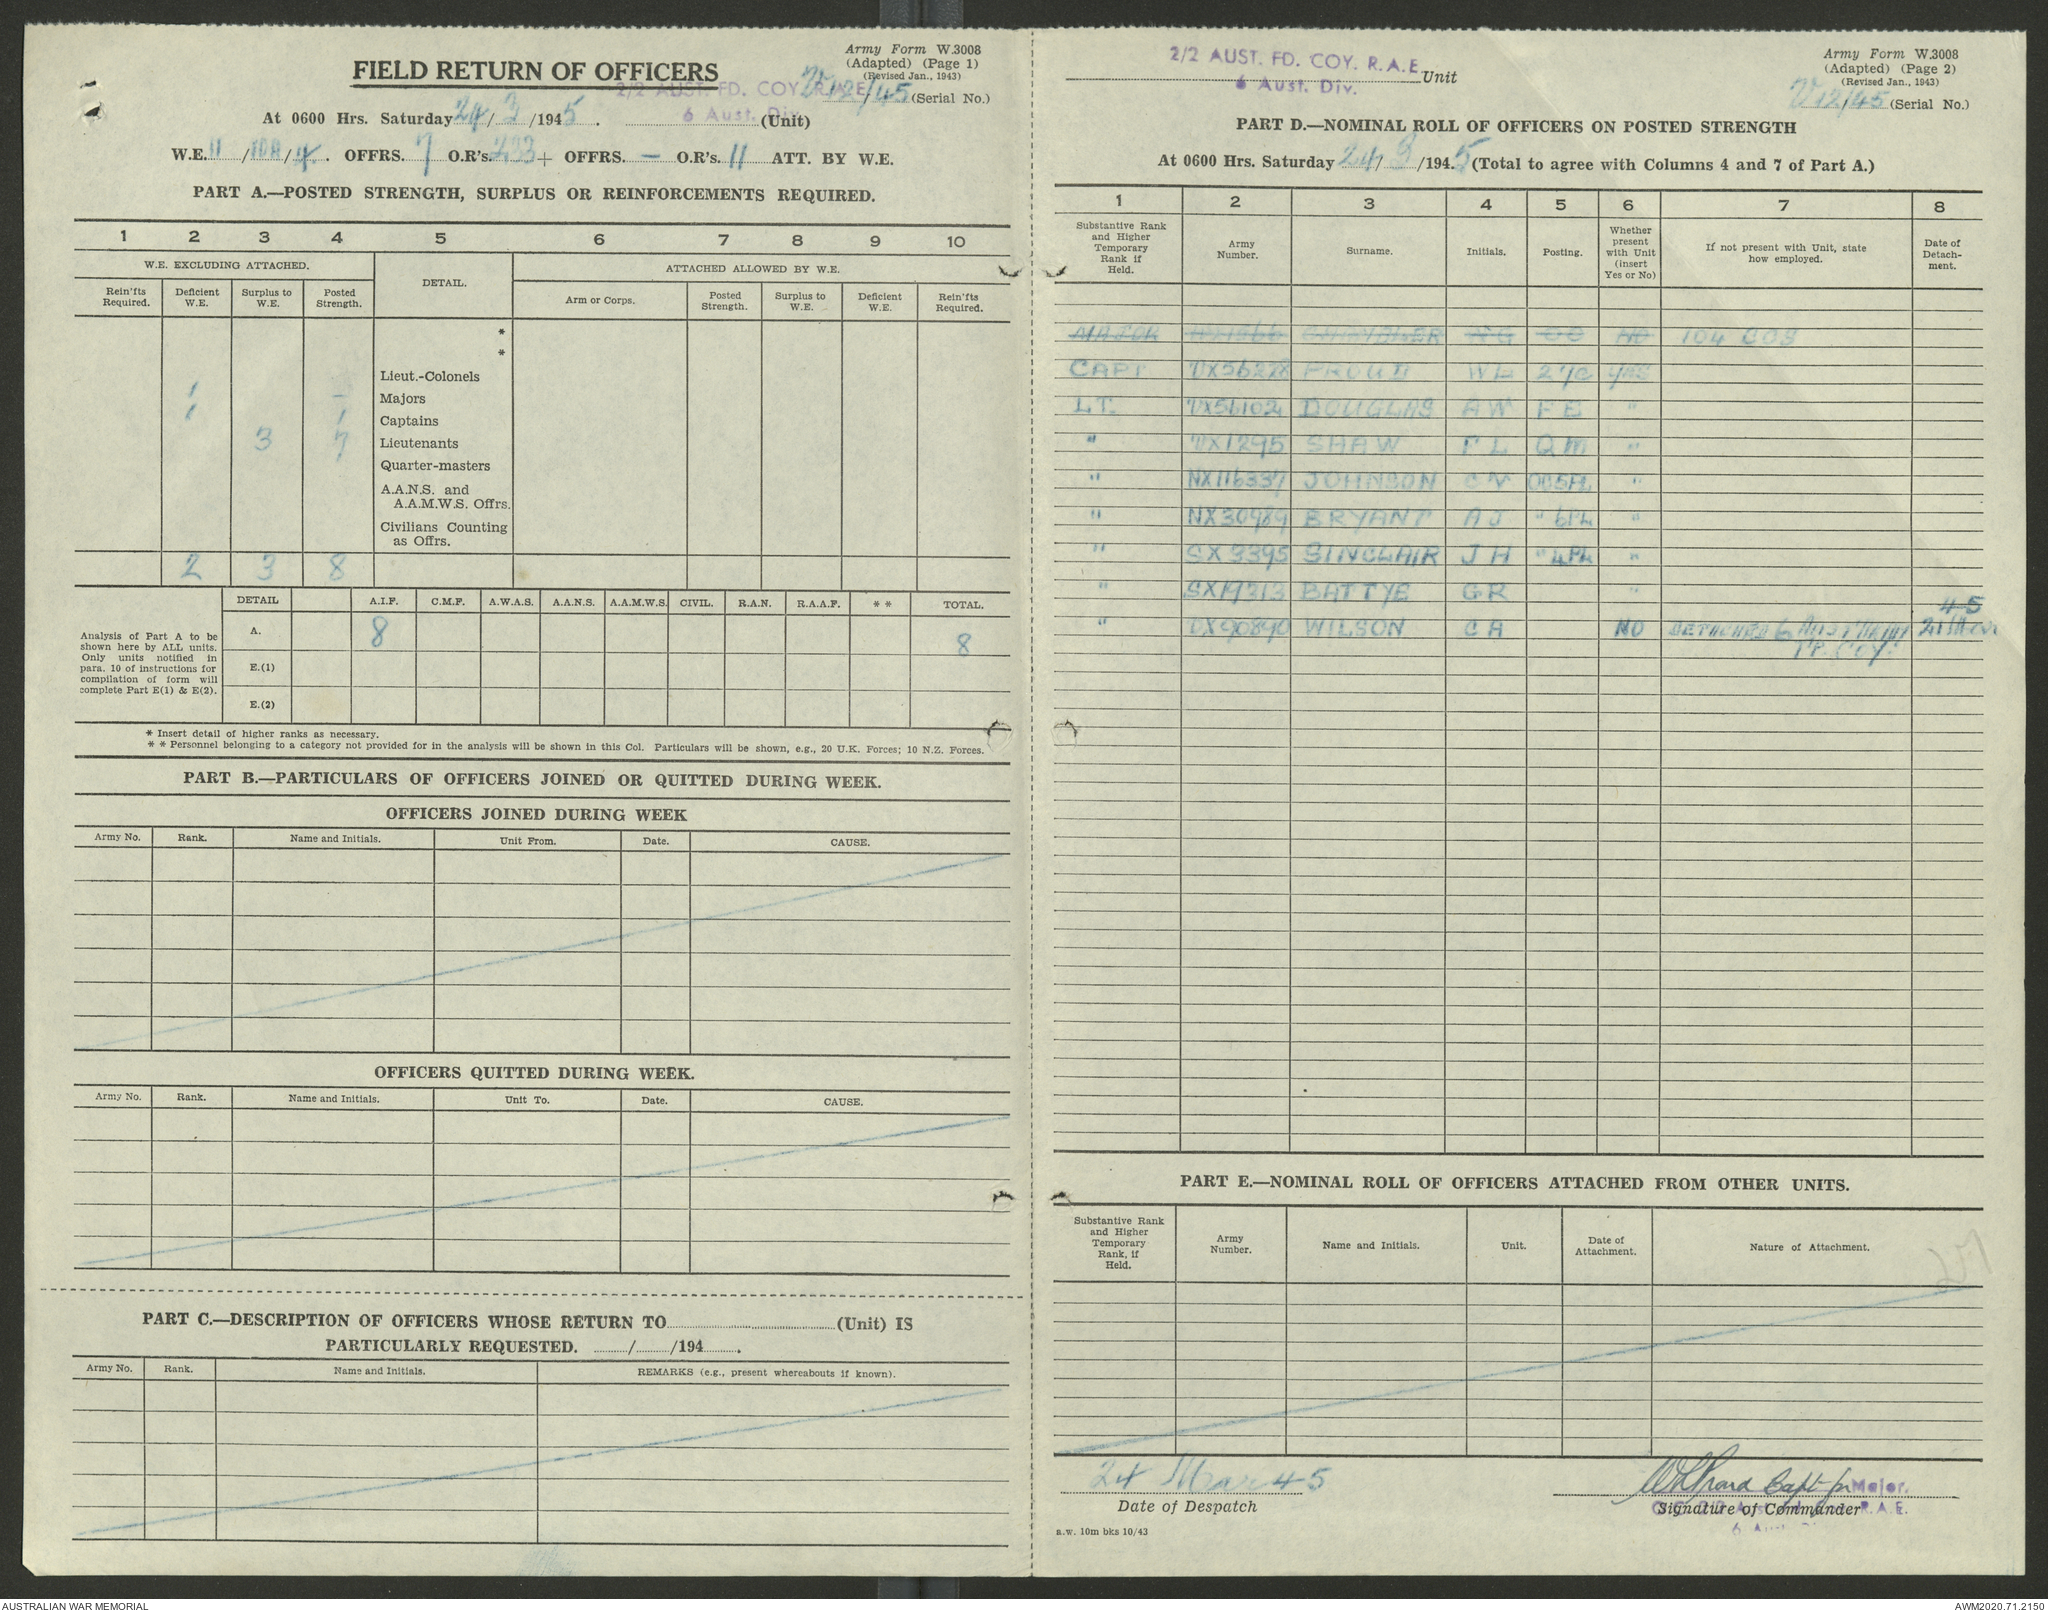 Army Form W.3008
(Adapted) (Page 1)
(Revised Jan., 1943)
FIELD RETURN OF OFFICERS
2/2 AUST. FD. COY. R.A.E.
6 Aust. Div.
V12/45 (Serial No.)
At 0600 Hrs. Saturday 24/3/1945. (Unit)
W.E. 11/10A/4. OFFRS. 7 O.R's. 233 + OFFRS. — O.R's. 11 ATT. BY W.E.
PART A.—POSTED STRENGTH, SURPLUS OR REINFORCEMENTS REQUIRED.
1 2 3 4 5 6 7 8 9 10
W.E. EXCLUDING ATTACHED. DETAIL. ATTACHED ALLOWED BY W.E.
Rein'fts Required. Deficient W.E. Surplus to W.E. Posted Strength. Arm or Corps. Posted Strength. Surplus to W.E. Deficient W.E. Rein'fts Required.
*
*
Lieut.-Colonels
1 — Majors
1 1 Captains
3 7 Lieutenants
Quarter-masters
A.A.N.S. and
A.A.M.W.S. Offrs.
Civilians Counting
as Offrs.
2 3 8
Analysis of Part A to be shown here by ALL units. Only units notified in para. 10 of instructions for compilation of form will complete Part E(1) & E(2).
DETAIL A.I.F. C.M.F. A.W.A.S. A.A.N.S. A.A.M.W.S. CIVIL. R.A.N. R.A.A.F. * * TOTAL.
A. 8 8
E.(1)
E.(2)
* Insert detail of higher ranks as necessary.
* * Personnel belonging to a category not provided for in the analysis will be shown in this Col. Particulars will be shown, e.g., 20 U.K. Forces; 10 N.Z. Forces.
PART B.—PARTICULARS OF OFFICERS JOINED OR QUITTED DURING WEEK.
OFFICERS JOINED DURING WEEK
Army No. Rank. Name and Initials. Unit From. Date. CAUSE.
OFFICERS QUITTED DURING WEEK.
Army No. Rank. Name and Initials. Unit To. Date. CAUSE.
PART C.—DESCRIPTION OF OFFICERS WHOSE RETURN TO (Unit) IS
PARTICULARLY REQUESTED. / /194 .
Army No. Rank. Name and Initials. REMARKS (e.g., present whereabouts if known).
2/2 AUST. FD. COY. R.A.E. Unit
6 Aust. Div.
Army Form W.3008
(Adapted) (Page 2)
(Revised Jan., 1943)
V12/45 (Serial No.)
PART D.—NOMINAL ROLL OF OFFICERS ON POSTED STRENGTH
At 0600 Hrs. Saturday 24/3/1945 (Total to agree with Columns 4 and 7 of Part A.)
1 2 3 4 5 6 7 8
Substantive Rank and Higher Temporary Rank if Held. Army Number. Surname. Initials. Posting. Whether present with Unit (insert Yes or No) If not present with Unit, state how employed. Date of Detachment.
MAJOR OC NO 104 COS
CAPT VX56278 PROUD WL 2 I/C YES
LT. VX56102 DOUGLAS AW F E "
" VX1295 SHAW F L QM "
" NX116337 JOHNSON C V OC 5 PL "
" NX30489 BRYANT A J " 6 PL "
" SX3395 SINCLAIR J H " 4 PL "
" SX19313 BATTYE G R "
" VX90890 WILSON C A NO DETACHED 6
COY.
PART E.—NOMINAL ROLL OF OFFICERS ATTACHED FROM OTHER UNITS.
Substantive Rank and Higher Temporary Rank, if Held. Army Number. Name and Initials. Unit. Date of Attachment. Nature of Attachment.
24 Mar 45
Date of Despatch
WL Proud Capt for Major.
Signature of Commander
R.A.E.
a.w. 10m bks 10/43
AUSTRALIAN WAR MEMORIAL
AWM2020.71.2150